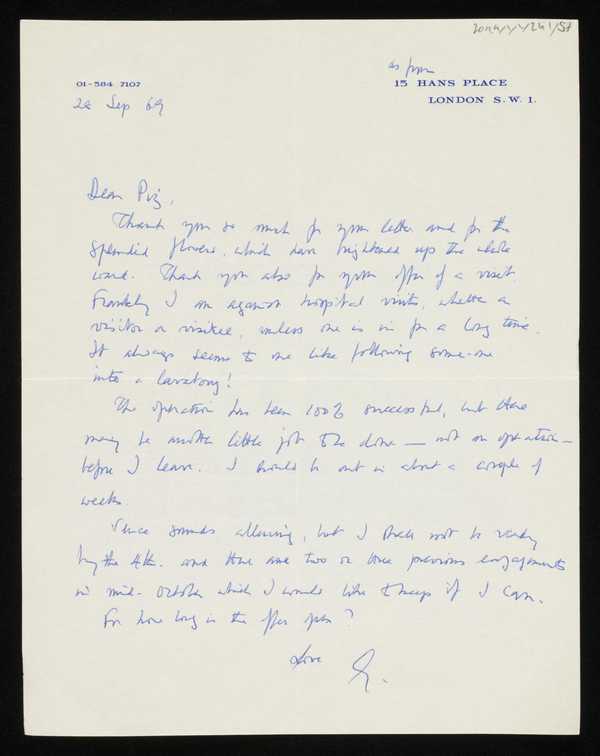 as from
01-584 7107
15 HANS PLACE
LONDON S.W.1.
Sep 69
Dear Piz,
Thank you so much for your letter and for the
splendid flowers, which have brightened up the whole
ward. Thank you also for your offer of a visit.
Frankly I am against hospital visits, whether as
visitor or visitee, unless one is in for a long time.
It always seems to me like following some-one
into a lavatory!
The operation has been 100% successful, but there
may be another little job to be done — not an operation —
before I leave. I should be out in about a couple of
weeks.
Venice sounds alluring, but I shall not be ready
by the 4th. and there are two or three previous engagements
in mid-October which I would like to keep if I can.
For how long is the offer open?
Love
G.